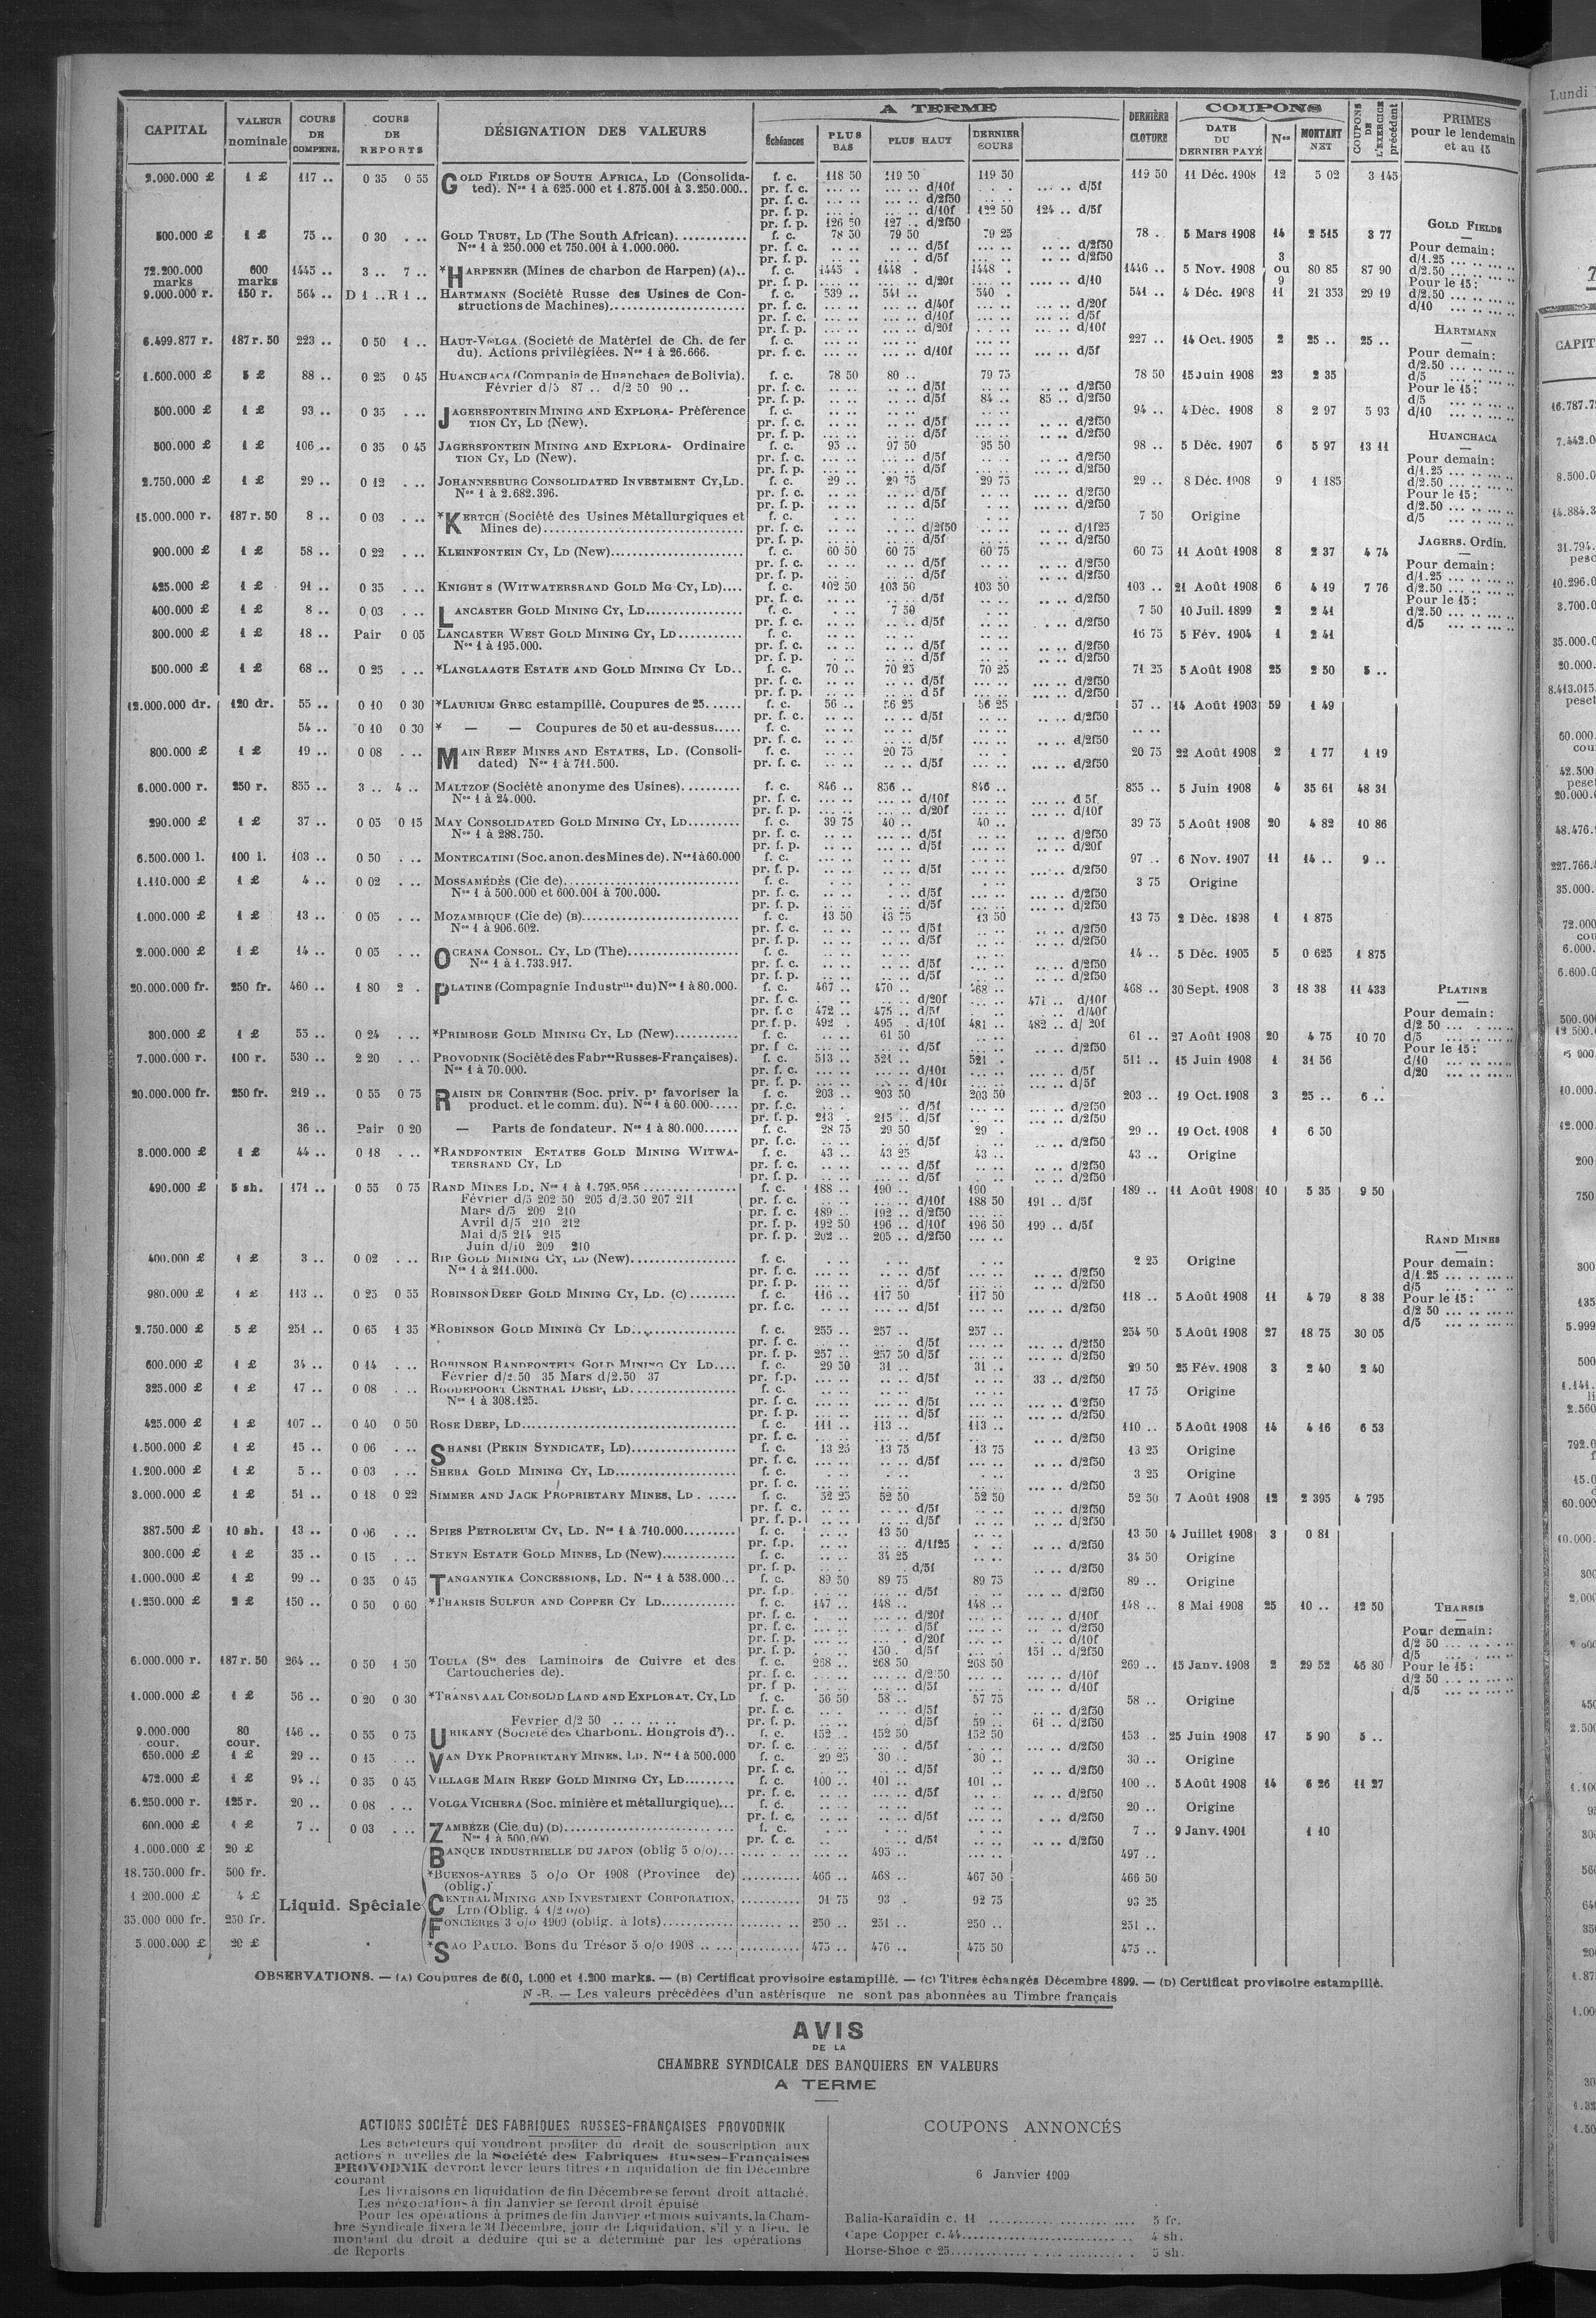 CAPITAL | VALEUR nominale | COURS DE COMPENS. | COURS DE REPORTS | DÉSIGNATION DES VALEURS | A TERME | DERNIÈRE CLOTURE | COUPONS | COUPONS DE L'EXERCICE précédent | PRIMES pour le lendemain et au 15
Échéances | PLUS BAS | PLUS HAUT | DERNIER COURS | DATE DU DERNIER PAYÉ | Nos | MONTANT NET
2.000.000 £ 1 £ 117 .. 0 35 0 55 GOLD FIELDS OF SOUTH AFRICA, LD (Consolida- f. c. 118 50 119 50 119 50 119 50 11 Déc. 1908 12 5 02 3 145
ted). Nos 1 à 625.000 et 1.875.001 à 3.250.000.. pr. f. c. d/10f d/5f
pr. f. c. d/2f50
pr. f. p. d/10f 122 50 124 .. d/5f
pr. f. p. 126 50 127 .. d/2f50
500.000 £ 1 £ 75 .. 0 30 GOLD TRUST, LD (The South African) f. c. 78 50 79 50 79 25 78 . 5 Mars 1908 14 2 515 3 77
Nos 1 à 250.000 et 750.001 à 1.000.000. pr. f. c. d/5f d/2f50
pr. f. p. d/5f d/2f50
72.200.000 marks 600 marks 1445 .. 3 .. 7 .. *HARPENER (Mines de charbon de Harpen) (A).. f. c. 1445 . 1448 . 1448 . 1446 .. 5 Nov. 1908 3 ou 9 80 85 87 90
pr. f. p. d/20f d/10
9.000.000 r. 150 r. 564 .. D 1 .. R 1 .. HARTMANN (Société Russe des Usines de Con- f. c. 539 .. 541 .. 540 . 541 .. 4 Déc. 1908 11 21 353 29 19
structions de Machines) pr. f. c. d/40f d/20f
pr. f. c. d/10f d/5f
pr. f. p. d/20f d/10f
6.499.877 r. 187 r. 50 223 .. 0 50 1 .. HAUT-VOLGA (Societé de Matériel de Ch. de fer f. c. 227 .. 14 Oct. 1905 2 25 .. 25 ..
du). Actions privilégiées. Nos 1 à 26.666. pr. f. c. d/10f d/5f
1.600.000 £ 5 £ 88 .. 0 25 0 45 HUANCHACA (Compania de Huanchaca de Bolivia). f. c. 78 50 80 .. 79 75 78 50 15 Juin 1908 23 2 35
Février d/5 87 .. d/2 50 90 .. pr. f. c. d/5f d/2f50
pr. f. p. d/5f 84 .. 85 .. d/2f50
500.000 £ 1 £ 93 .. 0 35 JAGERSFONTEIN MINING AND EXPLORA- Préférence f. c. 94 .. 4 Déc. 1908 8 2 97 5 93
TION CY, LD (New). pr. f. c. d/5f d/2f50
pr. f. p. d/5f d/2f50
500.000 £ 1 £ 106 .. 0 35 0 45 JAGERSFONTEIN MINING AND EXPLORA- Ordinaire f. c. 95 .. 97 50 95 50 98 .. 5 Déc. 1907 6 5 97 13 11
TION CY, LD (New). pr. f. c. d/5f d/2f50
pr. f. p. d/5f d/2f50
2.750.000 £ 1 £ 29 .. 0 12 JOHANNESBURG CONSOLIDATED INVESTMENT CY, LD. f. c. 29 .. 29 75 29 75 29 .. 8 Déc. 1908 9 1 185
Nos 1 à 2.682.396. pr. f. c. d/5f d/2f50
pr. f. p. d/5f d/2f50
15.000.000 r. 187 r. 50 8 .. 0 03 *KERTCH (Société des Usines Métallurgiques et f. c. 7 50 Origine
Mines de) pr. f. c. d/2f50 d/1f25
pr. f. p. d/5f d/2f50
900.000 £ 1 £ 58 .. 0 22 KLEINFONTEIN CY, LD (New) f. c. 60 50 60 75 60 75 60 75 11 Août 1908 8 2 37 4 74
pr. f. c. d/5f d/2f50
pr. f. p. d/5f d/2f50
425.000 £ 1 £ 91 .. 0 35 KNIGHT S (WITWATERSRAND GOLD MG CY, LD) f. c. 102 50 103 50 103 50 103 .. 21 Août 1908 6 4 19 7 76
pr. f. c. d/5f d/2f50
400.000 £ 1 £ 8 .. 0 03 LANCASTER GOLD MINING CY, LD f. c. 7 50 7 50 10 Juil. 1899 2 2 41
pr. f. c. d/5f d/2f50
300.000 £ 1 £ 18 .. Pair 0 05 LANCASTER WEST GOLD MINING CY, LD f. c. 16 75 5 Fév. 1904 1 2 41
Nos 1 à 195.000. pr. f. c. d/5f d/2f50
pr. f. p. d/5f d/2f50
500.000 £ 1 £ 68 .. 0 25 *LANGLAAGTE ESTATE AND GOLD MINING CY LD.. f. c. 70 .. 70 25 70 25 71 25 5 Août 1908 25 2 50 5 ..
pr. f. c. d/5f d/2f50
pr. f. p. d 5f d/2f50
12.000.000 dr. 120 dr. 55 .. 0 10 0 30 *LAURIUM GREC estampillé. Coupures de 25 f. c. 56 .. 56 25 56 25 57 .. 14 Août 1903 59 1 49
pr. f. c. d/5f d/2f50
54 .. 0 10 0 30 * — — Coupures de 50 et au-dessus f. c.
pr. f. c. d/5f d/2f50
800.000 £ 1 £ 19 .. 0 08 MAIN REEF MINES AND ESTATES, LD. (Consoli- f. c. 20 75 20 75 22 Août 1908 2 1 77 1 19
dated) Nos 1 à 711.500. pr. f. c. d/5f d/2f50
6.000.000 r. 250 r. 855 .. 3 .. 4 .. MALTZOF (Société anonyme des Usines) f. c. 846 .. 856 .. 846 .. 855 .. 5 Juin 1908 4 35 61 48 31
Nos 1 à 24.000. pr. f. c. d/10f d 5f
pr. f. p. d/20f d/10f
290.000 £ 1 £ 37 .. 0 05 0 15 MAY CONSOLIDATED GOLD MINING CY, LD f. c. 39 75 40 .. 40 .. 39 75 5 Août 1908 20 4 82 10 86
Nos 1 à 288.750. pr. f. c. d/5f d/2f50
pr. f. p. d/5f d/20f
6.500.000 l. 100 l. 103 .. 0 50 MONTECATINI (Soc. anon. des Mines de). Nos 1 à 60.000 f. c. 97 .. 6 Nov. 1907 11 14 .. 9 ..
pr. f. p. d/5f d/2f50
1.110.000 £ 1 £ 4 .. 0 02 MOSSAMÉDÈS (Cie de) f. c. 3 75 Origine
Nos 1 à 500.000 et 600.001 à 700.000. pr. f. c. d/5f d/2f50
pr. f. p. d/5f d/2f50
1.000.000 £ 1 £ 13 .. 0 05 MOZAMBIQUE (Cie de) (B) f. c. 13 50 13 75 13 50 13 75 2 Déc. 1898 1 1 875
Nos 1 à 906.602. pr. f. c. d/5f d/2f50
pr. f. p. d/5f d/2f50
2.000.000 £ 1 £ 14 .. 0 05 OCEANA CONSOL. CY, LD (The) f. c. 14 .. 5 Déc. 1905 5 0 625 1 875
Nos 1 à 1.733.917. pr. f. c. d/5f d/2f50
pr. f. p. d/5f d/2f50
20.000.000 fr. 250 fr. 460 .. 1 80 2 . PLATINE (Compagnie Industrlle du) Nos 1 à 80.000. f. c. 467 .. 470 .. 468 .. 468 .. 30 Sept. 1908 3 18 38 11 433
pr. f. c. d/20f 471 .. d/10f
pr. f. c 472 .. 475 .. d/5f d/40f
pr. f. p. 492 . 495 . d/10f 481 .. 482 .. d/ 20f
300.000 £ 1 £ 55 .. 0 24 *PRIMROSE GOLD MINING CY, LD (New) f. c. 61 50 61 .. 27 Août 1908 20 4 75 10 70
pr. f c. d/5f d/2f50
7.000.000 r. 100 r. 530 .. 2 20 PROVODNIK (Société des Fabres Russes-Françaises). f. c. 513 .. 521 .. 521 . 511 .. 15 Juin 1908 1 31 56
Nos 1 à 70.000. pr. f. c. d/10f d/5f
pr. f. p. d/10f d/5f
20.000.000 fr. 250 fr. 219 .. 0 55 0 75 RAISIN DE CORINTHE (Soc. priv. pr favoriser la f. c. 203 .. 203 50 203 50 203 .. 19 Oct. 1908 3 25 .. 6 ..
product. et le comm. du). Nos 1 à 60.000 pr. f. c. d/5f d/2f50
pr. f. p. 213 . 215 .. d/5f d/2f50
36 .. Pair 0 20 — Parts de fondateur. Nos 1 à 80.000 f. c. 28 75 29 50 29 . 29 .. 19 Oct. 1908 1 6 50
pr. f. c. d/5f d/2f50
3.000.000 £ 1 £ 44 .. 0 18 *RANDFONTEIN ESTATES GOLD MINING WITWA- f. c. 43 .. 43 25 43 .. 43 .. Origine
TERSRAND CY, LD pr. f. c. d/5f d/2f50
pr. f. p. d/5f d/2f50
490.000 £ 5 sh. 171 .. 0 55 0 75 RAND MINES LD. Nos 1 à 1.795.956 f. c. 188 .. 190 .. 190 189 .. 11 Août 1908 10 5 35 9 50
Février d/5 202 50 205 d/2.50 207 211 pr. f. c. d/10f 188 50 191 .. d/5f
Mars d/5 209 210 pr. f. c. 189 .. 192 .. d/2f50
Avril d/5 210 212 pr. f. p. 192 50 196 .. d/10f 196 50 199 .. d/5f
Mai d/5 214 215 pr. f. p. 202 .. 205 .. d/2f50
Juin d/10 209 210
400.000 £ 1 £ 3 .. 0 02 RIP GOLD MINING CY, LD (New) f. c. 2 25 Origine
Nos 1 à 211.000. pr. f. c. d/5f d/2f50
pr. f. p. d/5f d/2f50
980.000 £ 1 £ 113 .. 0 25 0 55 ROBINSON DEEP GOLD MINING CY, LD. (C) f. c. 116 .. 117 50 117 50 118 .. 5 Août 1908 11 4 79 8 38
pr. f. c. d/5f d/2f50
2.750.000 £ 5 £ 251 .. 0 65 1 35 *ROBINSON GOLD MINING CY LD. f. c. 255 .. 257 .. 257 .. 254 50 5 Août 1908 27 18 75 30 05
pr. f. c. d/5f d/2f50
pr. f. p. 257 .. 257 50 d/5f d/2f50
600.000 £ 1 £ 34 .. 0 14 ROBINSON RANDFONTEIN GOLD MINING CY LD f. c. 29 50 31 .. 31 .. 29 50 25 Fév. 1908 3 2 40 2 40
Février d/2.50 35 Mars d/2.50 37 pr. f.p. d/5f 33 .. d/2f50
325.000 £ 1 £ 17 .. 0 08 ROODEPOORT CENTRAL DEEP, LD. f. c. 17 75 Origine
Nos 1 à 308.125. pr. f. c. d/5f d/2f50
pr. f. p. d/5f d/2f50
425.000 £ 1 £ 107 .. 0 40 0 50 ROSE DEEP, LD f. c. 111 .. 113 .. 113 .. 110 .. 5 Août 1908 14 4 16 6 53
pr. f. c. d/5f d/2f50
1.500.000 £ 1 £ 15 .. 0 06 SHANSI (PEKIN SYNDICATE, LD) f. c. 13 25 13 75 13 75 13 25 Origine
pr. f. c. d/5f d/2f50
1.200.000 £ 1 £ 5 .. 0 03 SHEBA GOLD MINING CY, LD f. c. 3 25 Origine
pr. f. c. d/2f50
3.000.000 £ 1 £ 51 .. 0 18 0 22 SIMMER AND JACK PROPRIETARY MINES, LD f. c. 52 25 52 50 52 50 52 50 7 Août 1908 12 2 395 4 795
pr. f. c. d/5f d/2f50
pr. f. p. d/5f d/2f50
387.500 £ 10 sh. 13 .. 0 06 SPIES PETROLEUM CY, LD. Nos 1 à 710.000 f. c. 13 50 13 50 4 Juillet 1908 3 0 81
pr. f.p. d/1f25 d/2f50
300.000 £ 1 £ 35 .. 0 15 STEYN ESTATE GOLD MINES, LD (New) f. c. 34 25 34 50 Origine
pr. f. p. d/5f d/2f50
1.000.000 £ 1 £ 99 .. 0 35 0 45 TANGANYIKA CONCESSIONS, LD. Nos 1 à 538.000 f. c. 89 50 89 75 89 75 89 .. Origine
pr. f.p. d/5f d/2f50
1.250.000 £ 2 £ 150 .. 0 50 0 60 *THARSIS SULFUR AND COPPER CY LD f. c. 147 .. 148 .. 148 .. 148 .. 8 Mai 1908 25 10 .. 12 50
pr. f. c. d/20f d/10f
pr. f. c. d/5f d/2f50
pr. f. p. d/20f d/10f
pr. f. p. 150 . d/5f 151 .. d/2f50
6.000.000 r. 187 r. 50 264 .. 0 50 1 50 TOULA (Sté des Laminoirs de Cuivre et des f. c. 268 .. 268 50 268 50 269 .. 15 Janv. 1908 2 29 52 45 30
Cartoucheries de). pr. f. c. d/2 50 d/10f
pr. f p. d/5f d/10f
1.000.000 £ 1 £ 56 .. 0 20 0 30 *TRANSVAAL CONSOLID LAND AND EXPLORAT. CY, LD f. c. 56 50 58 .. 57 75 58 .. Origine
pr. f. c. d/5f d/2f50
Février d/2 50 pr. f. p. d/5f 59 .. 61 .. d/2f50
9.000.000 cour. 80 cour. 146 .. 0 55 0 75 URIKANY (Société des Charbonn. Hongrois d').. f. c. 152 .. 152 50 152 50 153 .. 25 Juin 1908 17 5 90 5 ..
pr. f. c. d/5f d/2f50
650.000 £ 1 £ 29 .. 0 15 VAN DYK PROPRIETARY MINES, LD. Nos 1 à 500.000 f. c. 29 25 30 .. 30 .. 30 .. Origine
pr. f. c. d/5f d/2f50
472.000 £ 1 £ 94 .. 0 35 0 45 VILLAGE MAIN REEF GOLD MINING CY, LD f. c. 100 .. 101 .. 101 .. 100 .. 5 Août 1908 14 6 26 11 27
pr. f. c. d/5f d/2f50
6.250.000 r. 125 r. 20 .. 0 08 VOLGA VICHERA (Soc. minière et métallurgique) f. c. 20 .. Origine
pr. f. c. d/5f d/2f50
600.000 £ 1 £ 7 .. 0 03 ZAMBÈZE (Cie du) (D) f. c. 7 .. 9 Janv. 1901 1 10
Nos 1 à 500.000 pr. f. c. d/5f d/2f50
Liquid. Spéciale
1.000.000 £ 20 £ BANQUE INDUSTRIELLE DU JAPON (oblig 5 o/o) 495 .. 497 ..
18.750.000 fr. 500 fr. *BUENOS-AYRES 5 o/o Or 1908 (Province de) 466 .. 468 .. 467 50 466 50
(oblig.)
1 200.000 £ 4 £ CENTRAL MINING AND INVESTMENT CORPORATION, 91 75 93 . 92 75 93 25
LTD (Oblig. 4 1/2 o/o)
35.000 000 fr. 250 fr. FONCIÈRES 3 o/o 1909 (oblig. à lots) 250 .. 251 .. 250 .. 251 ..
5.000.000 £ 20 £ *SAO PAULO. Bons du Trésor 5 o/o 1908 475 .. 476 .. 475 50 475 ..
GOLD FIELDS
Pour demain:
d/1.25
d/2.50
Pour le 15:
d/2.50
d/10
HARTMANN
Pour demain:
d/2.50
d/5
Pour le 15:
d/5
d/10
HUANCHACA
Pour demain:
d/1.25
d/2.50
Pour le 15:
d/2.50
d/5
JAGERS. Ordin.
Pour demain:
d/1.25
d/2.50
Pour le 15:
d/2.50
d/5
PLATINE
Pour demain:
d/2 50
d/5
Pour le 15:
d/10
d/20
RAND MINES
Pour demain:
d/1.25
d/5
Pour le 15:
d/2 50
d/5
THARSIS
Pour demain:
d/2 50
d/5
Pour le 15:
d/2 50
d/5
OBSERVATIONS. — (A) Coupures de 600, 1.000 et 1.200 marks. — (B) Certificat provisoire estampillé. — (C) Titres échangés Décembre 1899. — (D) Certificat provisoire estampillé.
N-B. — Les valeurs précédées d'un astérisque ne sont pas abonnées au Timbre français
AVIS
DE LA
CHAMBRE SYNDICALE DES BANQUIERS EN VALEURS
A TERME
ACTIONS SOCIÉTÉ DES FABRIQUES RUSSES-FRANÇAISES PROVODNIK
Les acheteurs qui voudront profiter du droit de souscription aux
actions nouvelles de la Société des Fabriques Russes-Françaises
PROVODNIK devront lever leurs titres en liquidation de fin Décembre
courant
Les livraisons en liquidation de fin Décembre se feront droit attaché.
Les négociations à fin Janvier se feront droit épuisé
Pour les opérations à primes de fin Janvier et mois suivants, la Cham-
bre Syndicale fixera le 31 Décembre, jour de Liquidation, s'il y a lieu, le
montant du droit a déduire qui se a déterminé par les opérations
de Reports
COUPONS ANNONCÉS
6 Janvier 1909
Balia-Karaïdin c. 11 5 fr.
Cape Copper c. 44 4 sh.
Horse-Shoe c 25 5 sh.
Lundi
CAPIT